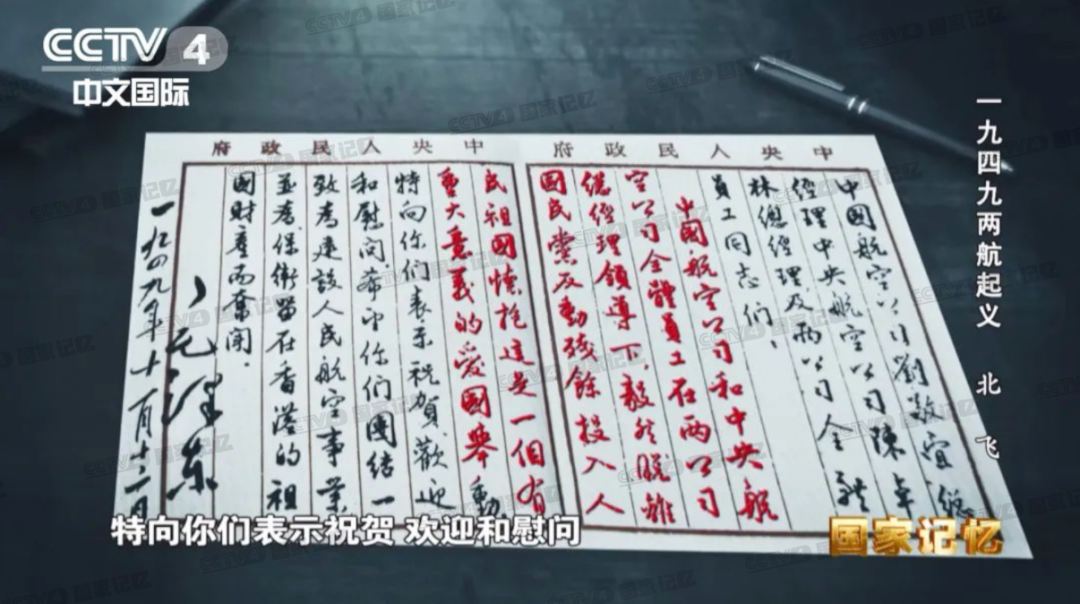 CCTV 4
中文国际
一九四九两航起义 北飞
中央人民政府
中國航空公司劉敬宜總
經理中央航空公司陳卓
林總經理及兩公司全體
員工同志們：
中國航空公司和中央航
空公司全體員工在兩公司
總經理領導下，毅然脫離
國民黨反動殘餘投入人
中央人民政府
民祖國懷抱這是一個有
重大意義的愛國舉動
特向你們表示祝賀歡迎
和慰問希望你們團結一
致為建設人民航空事業
並為保衛留在香港的祖
國財產而奮鬥.
毛澤東
一九四九年十一月十二日
特向你们表示祝贺 欢迎和慰问
国家记忆